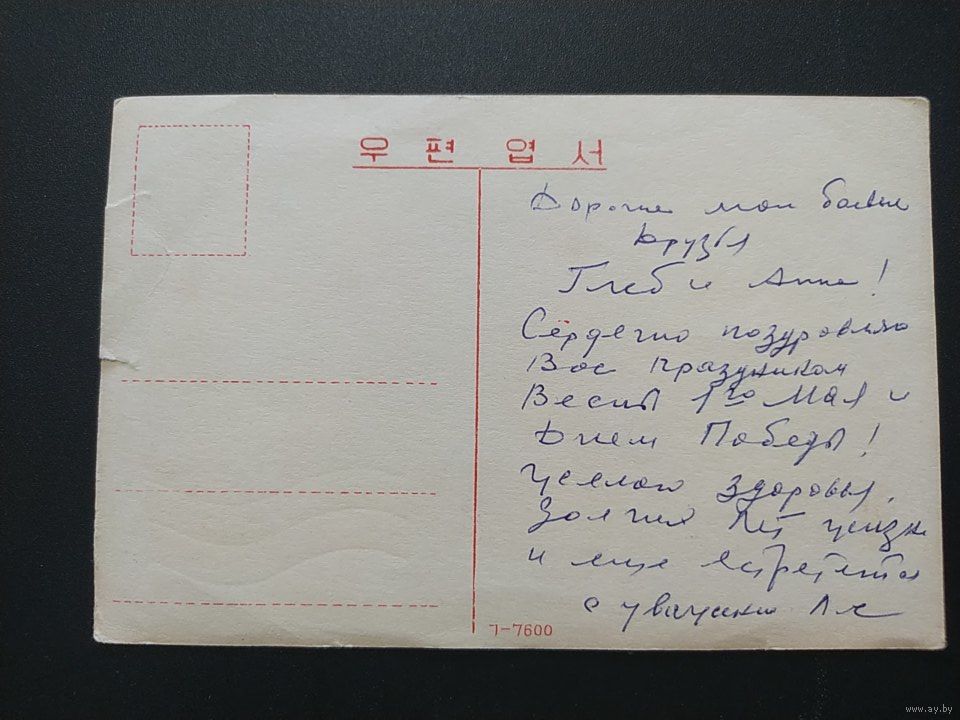 우편엽서
Дорогие мои боевые
друзья
Глеб и Анна!
Сёрдечно поздровляю
Вас праздником
Весны 1го Мая и
Днем Победы!
Желаю здоровья,
Долгих лет жизни
и еще встретится
с уважении
ㄱ-7600
www.ay.by